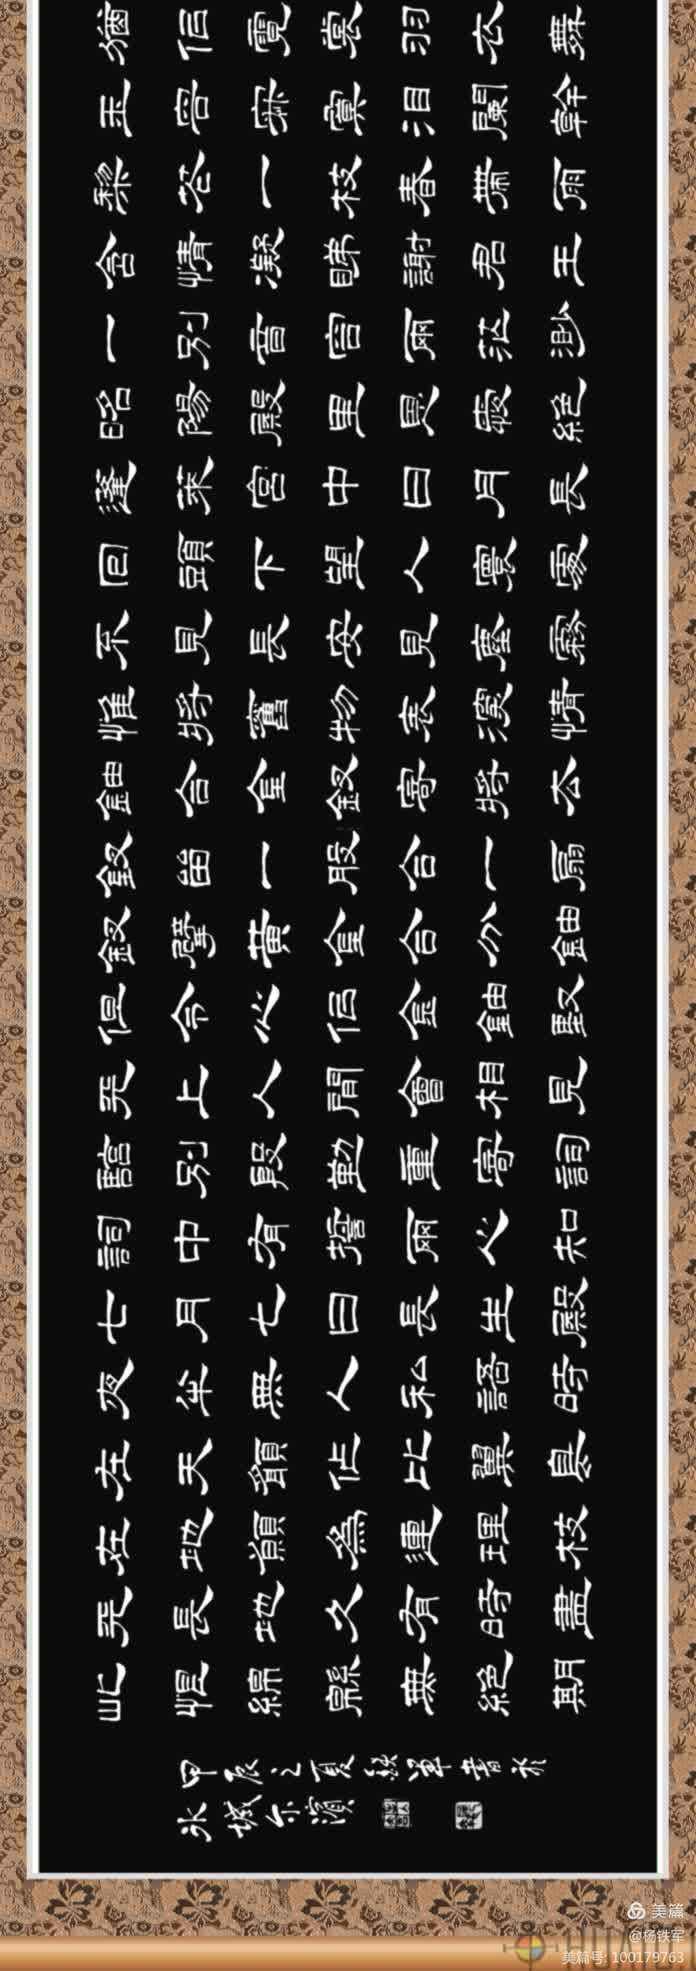 猶佀霓裳羽衣舞
玉容寂寞泪闌幹
梨花一枝春帶雨
含情凝睇謝君王
一别音容兩茫渺
昭陽殿里恩愛絕
蓬萊宮中日月長
回頭下望人寰處
不見長安見塵霧
惟將舊物表深情
鈿合金釵寄將去
釵留一股合一扇
釵擘黃金合分鈿
但令心佀金鈿堅
天上人間會相見
臨别殷勤重寄詞
詞中有誓兩心知
七月七日長生殿
夜半無人私語時
在天願作比翼
在地願為連理枝
天長地久有時盡
此恨綿緜無絕期
甲辰之夏鉄軍書於
冰城尔濱
美篇
@杨铁军
美篇号: 100179763